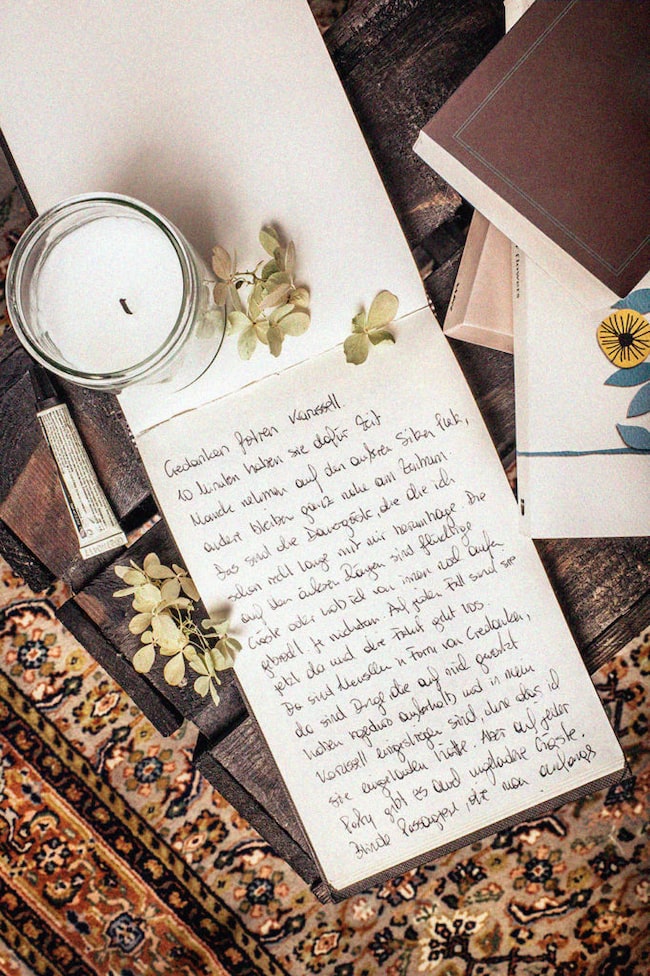 Gedanken fahren Karussell
10 Minuten haben sie dafür Zeit
Manche nehmen auf den äußeren Sitzen Platz,
andere bleiben ganz nahe am Zentrum
Das sind die Dauergäste, die die ich
schon recht lange mit mir herumtrage. Die
auf den äußeren Rängen sind flüchtige
Gäste oder von innen nach außen
gerückt. Auf jeden Fall sind sie
jetzt da und die Fahrt geht los.
Da sind Menschen in Form von Gedanken,
da sind Dinge die auf mich gewartet
haben irgendwo außerhalb und in mein
Karussell eingestiegen sind, ohne dass ich
sie eingeladen hätte. Aber auf jeder
Party gibt es auch ungeladene Gäste.
Blinde Passagiere, die man anfangs
Flowers